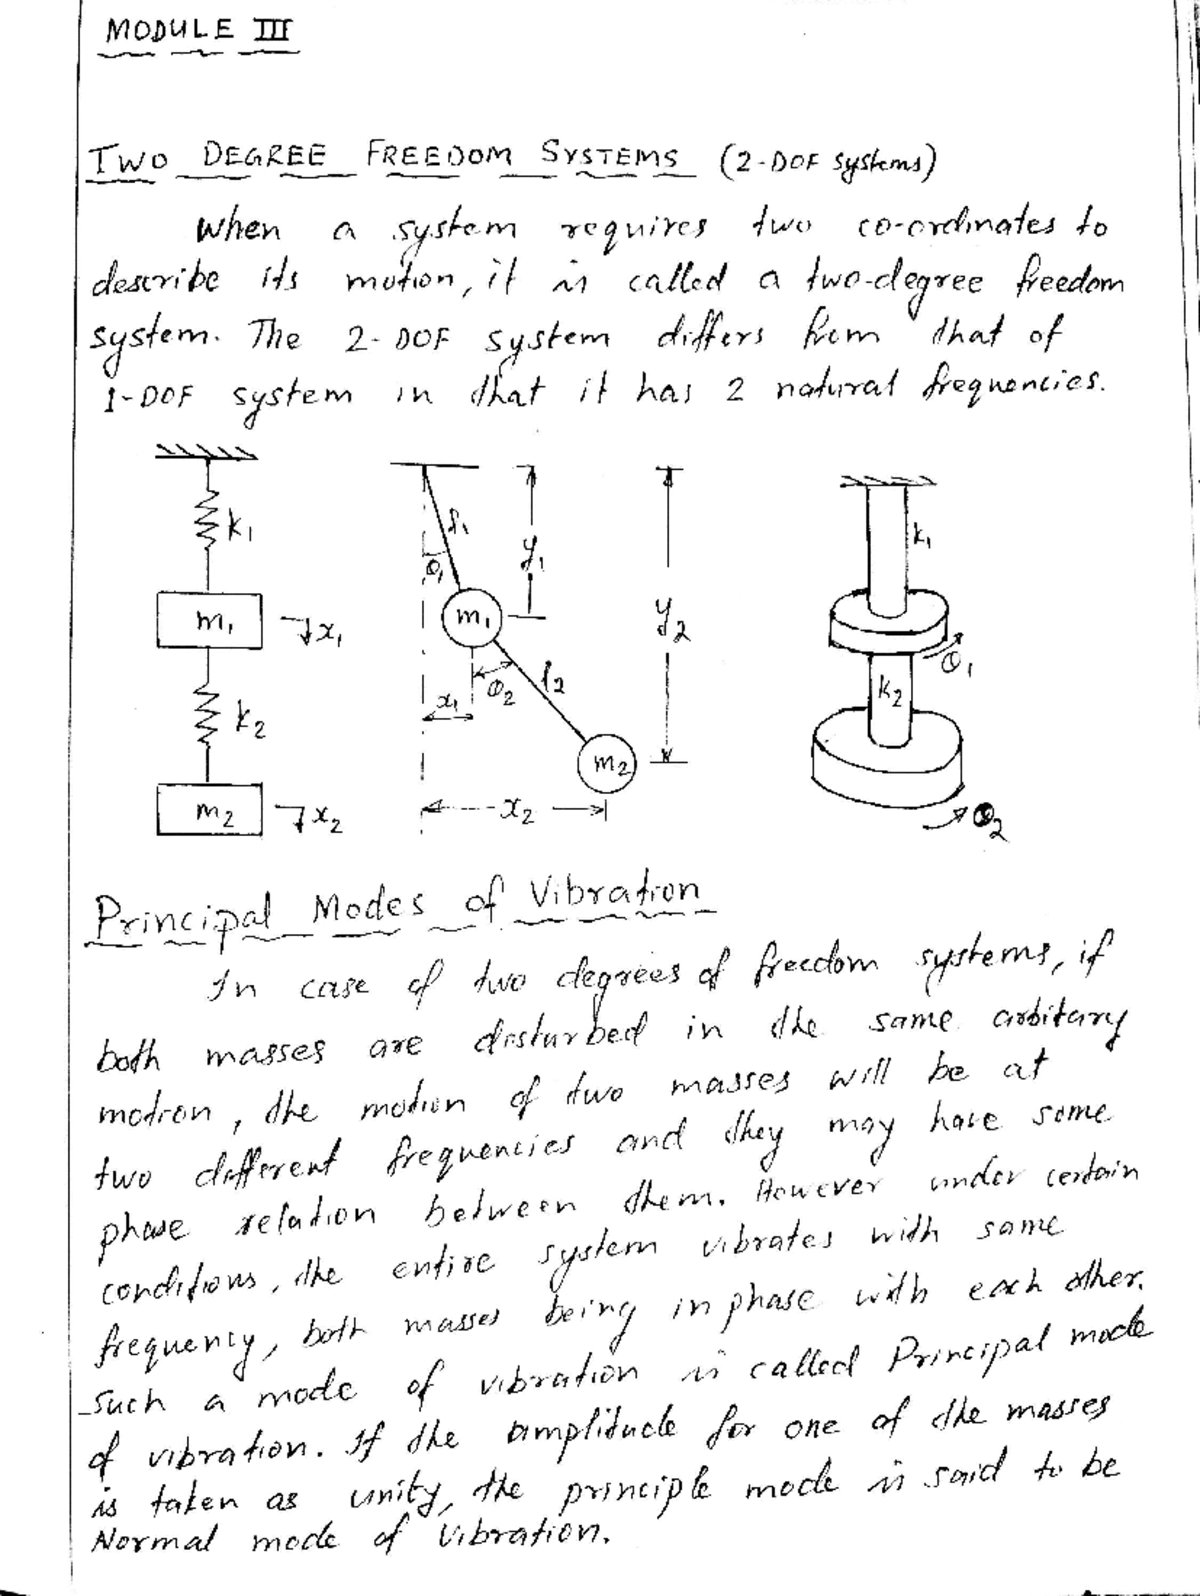 MODULE III
TWO DEGREE FREEDOM SYSTEMS (2-DOF systems)
When a system requires two co-ordinates to
describe its motion, it is called a two-degree freedom
system. The 2-DOF system differs from that of
1-DOF system in that it has 2 natural frequencies.
k₁
m₁
x₁
k₂
m₂
x₂
l₁
θ₁
y₁
m₁
y₂
θ₂
l₂
x₁
m₂
x₂
k₁
θ₁
k₂
θ₂
Principal Modes of Vibration
In case of two degrees of freedom systems, if
both masses are disturbed in the same arbitary
motion, the motion of two masses will be at
two different frequencies and they may have some
phase relation between them. However under certain
conditions, the entire system vibrates with same
frequency, both masses being in phase with each other.
Such a mode of vibration is called Principal mode
of vibration. If the amplitude for one of the masses
is taken as unity, the principle mode is said to be
Normal mode of Vibration.